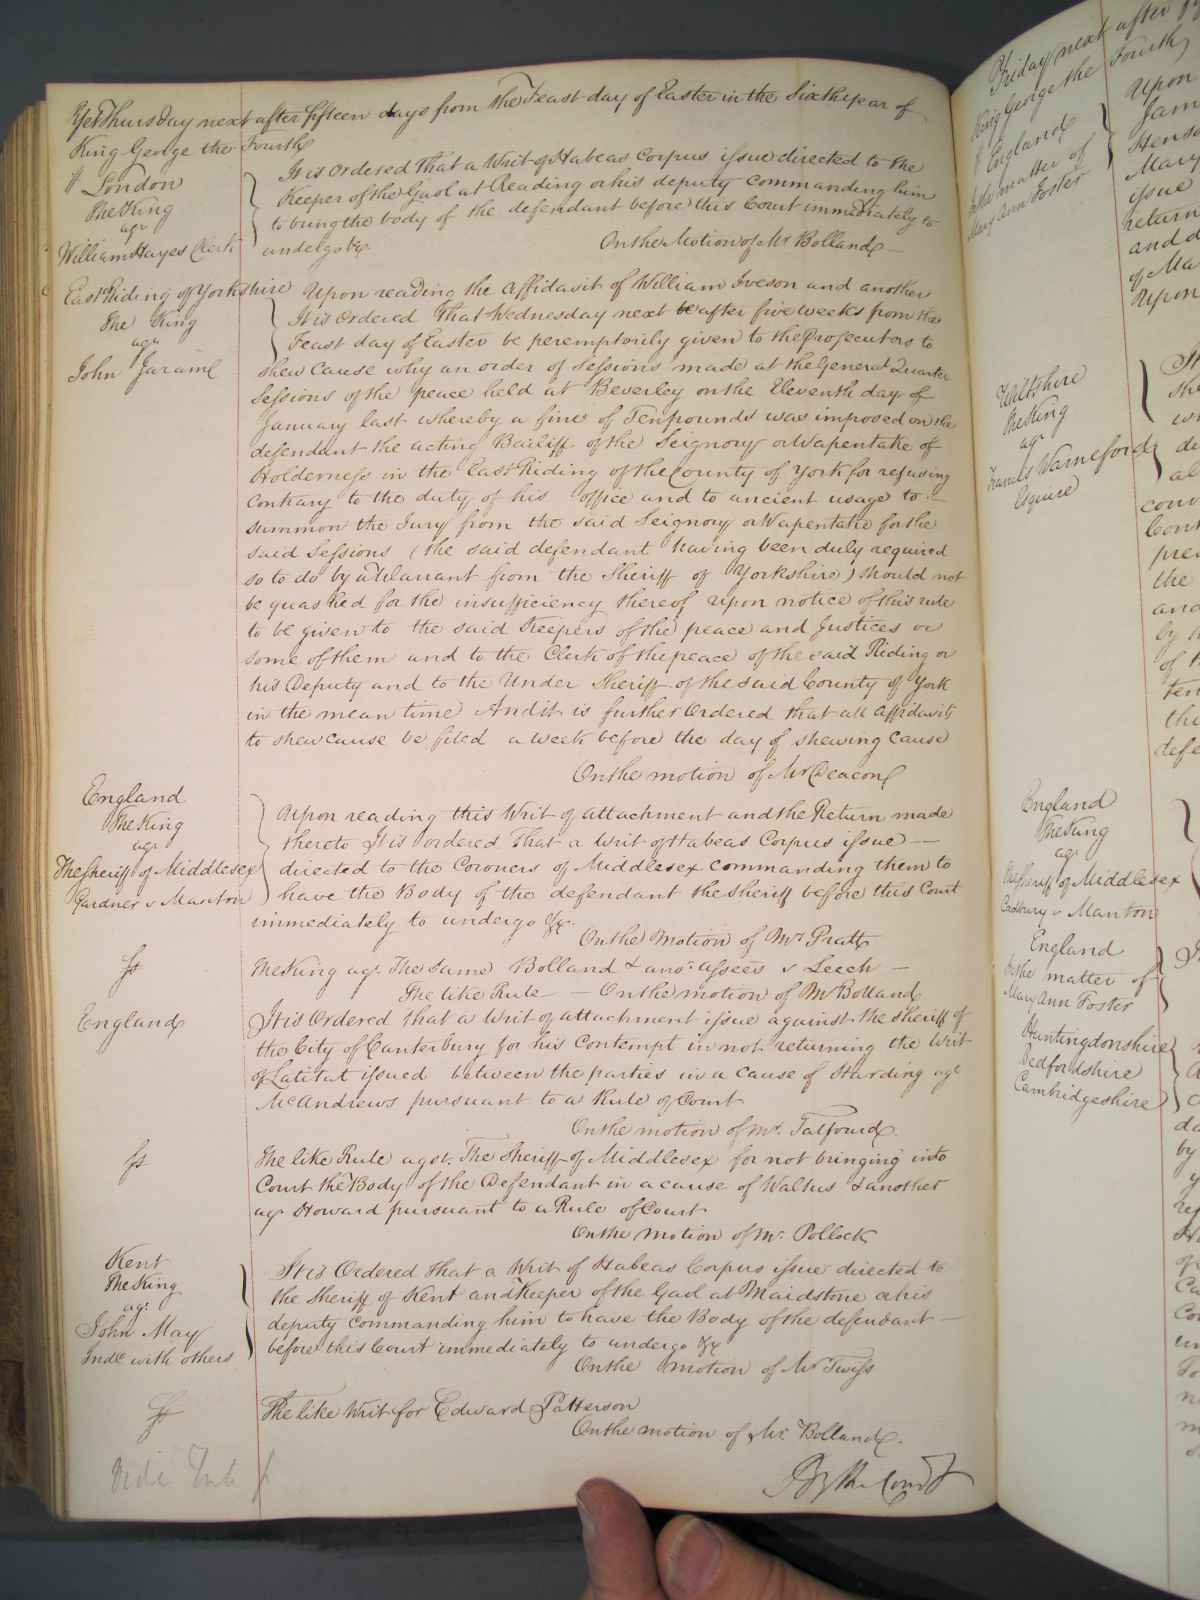 Yet Thursday next after fifteen days from the Feast day of Easter in the Sixth year of
King George the Fourth
London
The King
agt
William Hayes Clerk
It is Ordered That a Writ of Habeas Corpus issue directed to the
Keeper of the Gaol at Reading or his deputy commanding him
to bring the body of the defendant before this Court immediately to
undergo &c
On the Motion of Mr Bolland
East Riding of Yorkshire
The King
agt
John Jarame
Upon reading the affidavit of William Iveson and another
It is Ordered That Wednesday next after five weeks from the
Feast day of Easter be peremptorily given to the Prosecutors to
shew cause why an order of Sessions made at the General Quarter
Sessions of the peace held at Beverley on the Eleventh day of
January last whereby a fine of Ten pounds was imposed on the
defendant the acting Bailiff of the Seignory or Wapentake of
Holderness in the East Riding of the County of York for refusing
contrary to the duty of his office and to ancient usage to
summon the Jury from the said Seignory or Wapentake for the
said Sessions (the said defendant having been duly required
so to do by a Warrant from the Sheriff of Yorkshire) should not
be quashed for the insufficiency thereof upon notice of this rule
to be given to the said Keepers of the peace and Justices or
some of them and to the Clerk of the peace of the said Riding or
his Deputy and to the Under Sheriff of the said County of York
in the mean time And it is further Ordered that all affidavits
to shew cause be filed a week before the day of shewing cause
On the motion of Mr Deacon
England
The King
agt
The Sheriff of Middlesex
Gardner v Manton
Upon reading this Writ of attachment and the Return made
thereto It is ordered That a Writ of Habeas Corpus issue
directed to the Coroners of Middlesex commanding them to
have the Body of the defendant the Sheriff before this Court
immediately to undergo &c.
On the Motion of Mr Pratt
The King agt The Same Bolland & anor assees v Leech
The like Rule — On the motion of Mr Bolland
England
It is Ordered that a Writ of attachment issue against the Sheriff of
the City of Canterbury for his Contempt in not returning the Writ
of Latitat issued between the parties in a cause of Harding agt
McAndrews pursuant to a Rule of Court
On the motion of Mr. Talfourd
The like Rule agst. The Sheriff of Middlesex for not bringing into
Court the Body of the Defendant in a cause of Walters & another
agt Howard pursuant to a Rule of Court
On the motion of Mr Pollock
Kent
The King
agt
John May
Indd with others
It is Ordered that a Writ of Habeas Corpus issue directed to
the Sheriff of Kent and Keeper of the Gaol at Maidstone or his
deputy commanding him to have the Body of the defendant
before this Court immediately to undergo &c
On the motion of Mr Twiss
The like Writ for Edward Patterson
On the motion of Mr Bolland.
By the Court
Friday next after
King George the Fourth
England
In the matter of
Mary Ann Foster
Upon
Jam
Henso
Mary
issue
return
and d
of Ma
Upon
Wiltshire
The King
agt
Francis Warneford
Esquire
England
The King
agt
The Sheriff of Middlesex
Cadbury v Manton
England
In the matter of
Mary Ann Foster
Huntingdonshire
Bedfordshire
Cambridgeshire